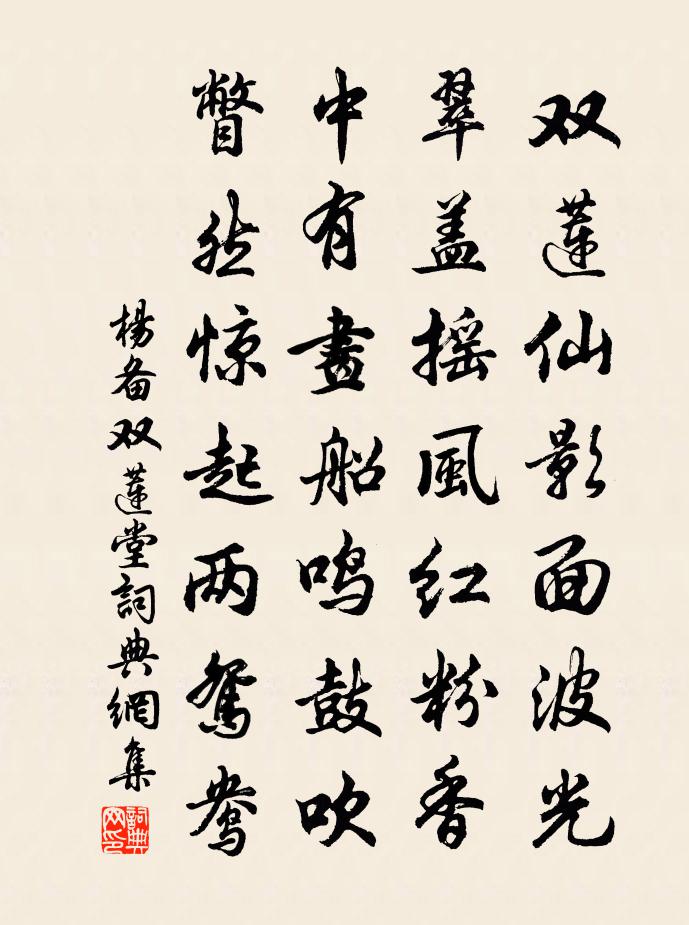 双蓮仙影面波光
翠盖摇風红粉香
中有畫船鸣鼓吹
瞥然惊起两鸳鸯
楊备双蓮堂詞典網集
詞典网印